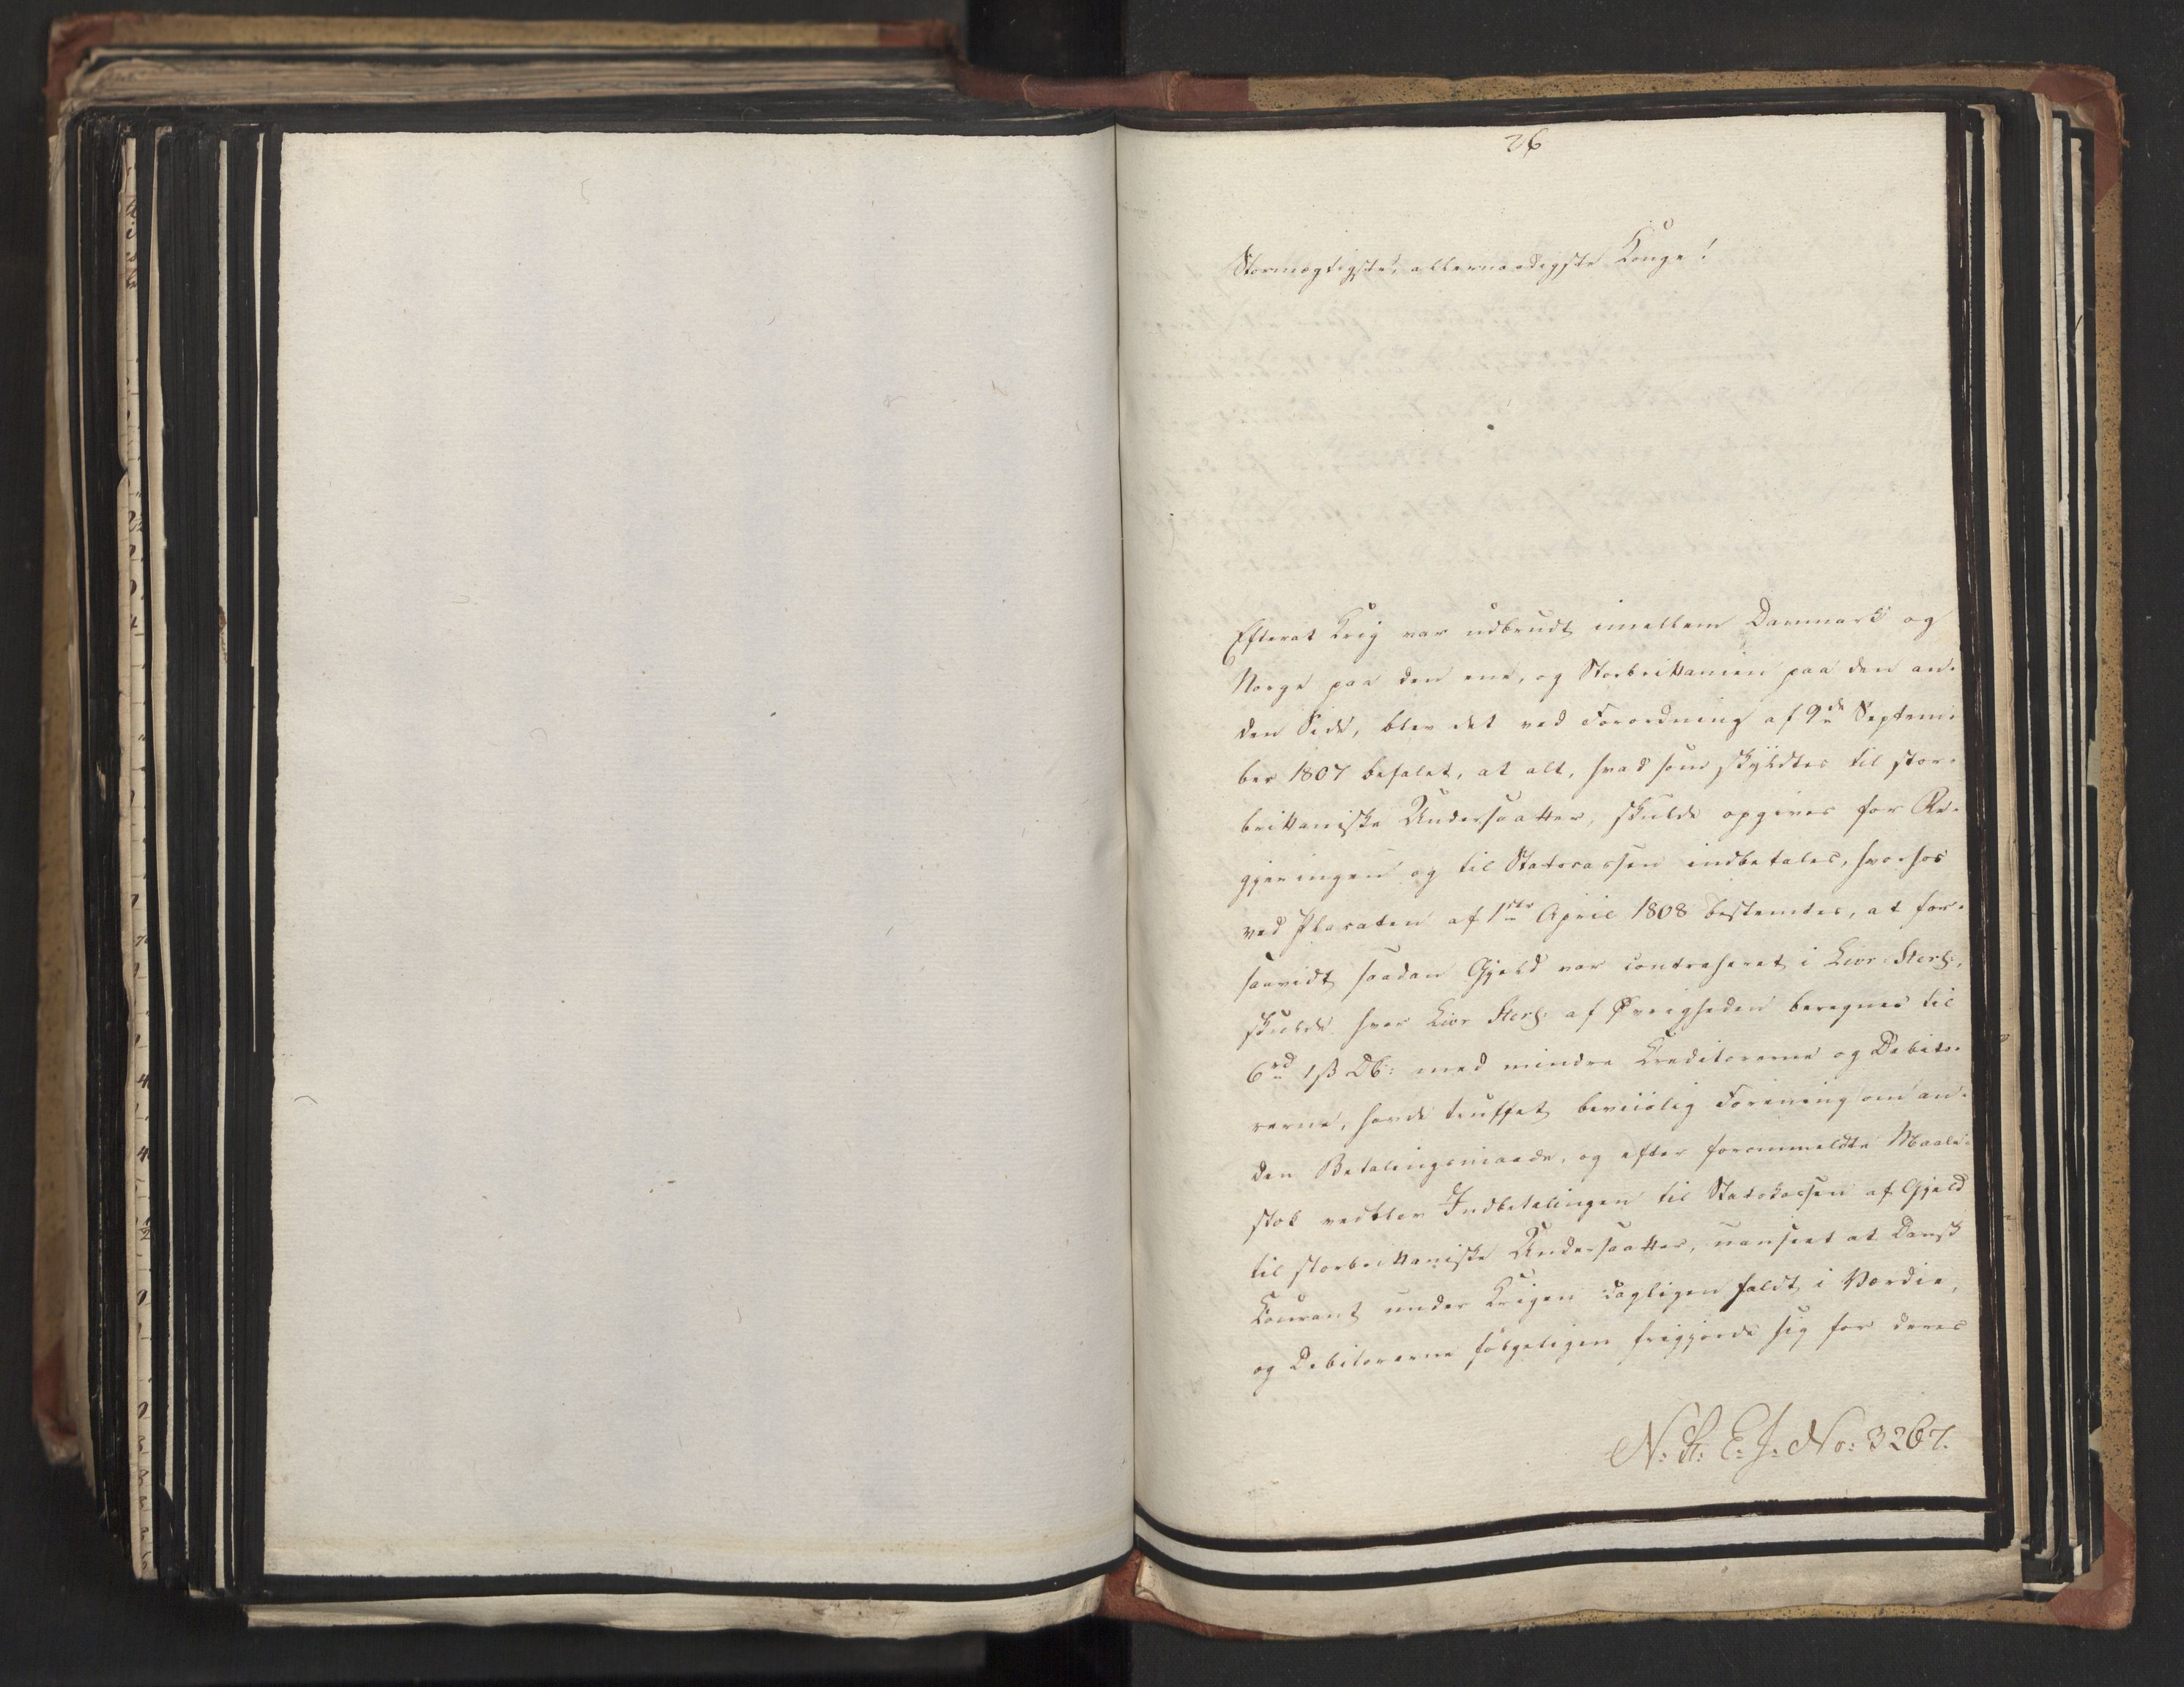 26
Stormægtigste, allernaadigste Konge!
Efterat Krig var udbrudt imellem Danmark og
Norge paa den ene, og Storbrittanien paa den an-
den Side, blev det ved Forordning af 9de Septem-
ber 1807 befalet, at alt, hvad som skyldtes til stor-
brittaniske Undersaatter, skulde opgives for Re-
gjeringen og til Statscassen indbetales, hvorhos
ved Placaten af 1ste April 1808 bestemtes, at for-
saavidt saadan Gjeld var contraheret i Livr. Sterl:,
skulde hver Livr Sterl: af Øvrigheden beregnes til
6rd 1ß DC: med mindre Creditorerne og Debito-
rerne, havde truffet beviislig Forening om an-
den Betalingsmaade, og efter forommeldte Maale-
stok vedblev Indbetalingen til Statskassen af Gjeld
til storbrittaniske Undersaatter, uanseet at Dansk
Courant under Krigen dagligen faldt i Værdie,
og Debitorerne følgeligen frigjorde sig for deres
N: R: E: J: No: 3267.